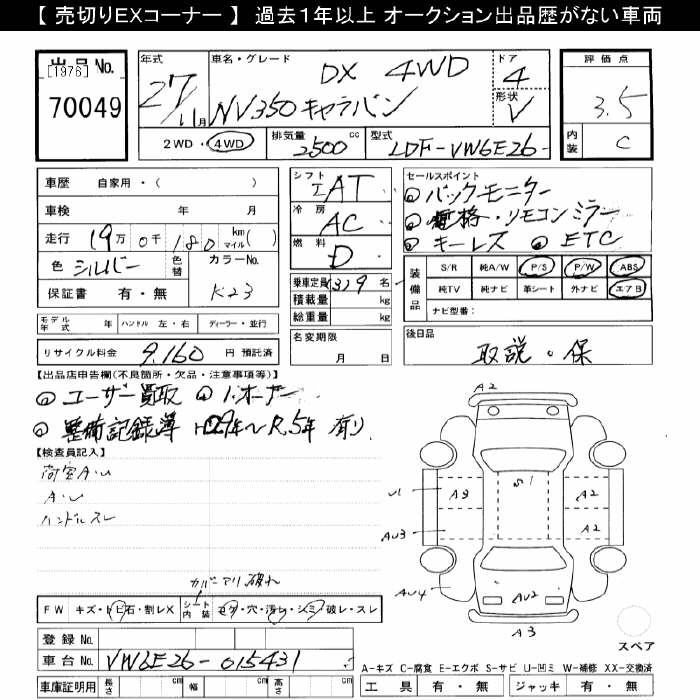 【 売切りEXコーナー 】 過去1年以上 オークション出品歴がない車両
出品 No.
[1976]
70049
年式
27/11月
車名・グレード
DX 4WD
NV350キャラバン
ドア
4
形状
V
2WD・4WD
排気量
2500 cc
型式
LDF-VW6E26-
評価点
3.5
内装
C
車歴 自家用・( )
車検 年 月
走行 19万0千180 km マイル( )
色 シルバー 色替 カラーNo. K23
保証書 有・無
シフト IAT
冷房 AC
燃料 D
乗車定員 名
積載量 kg
総重量 kg
名変期限
月 日
セールスポイント
バックモニター
電格・リモコンミラー
キーレス ETC
装備品
S/R 純A/W P/S P/W ABS
純TV 純ナビ 革シート 外ナビ エアB
ナビ型番:
モデル年式 年 ハンドル 左・右 ディーラー・並行
リサイクル料金 9,160 円 預託済
後日品
取説・保
【出品店申告欄(不良箇所・欠品・注意事項等)】
ユーザー買取 1オーナー
整備記録簿 H29年〜R.5年 有り
【検査員記入】
荷室A・U
A・U
ハンドルスレ
A2
U1 A3 S1 A2
AU3 A2
AU4 AU2
A3
スペア
カバーアリ 破れ
FW キズ・トビ石・割レX シート内装 コゲ・穴・汚レ・シミ・破レ・スレ
登録 No.
車台 No. VW6E26-015431
車庫証明用 長さ 幅 高さ
A-キズ C-腐食 E-エクボ S-サビ U-凹ミ W-補修 XX-交換済
工具 有・無 ジャッキ 有・無